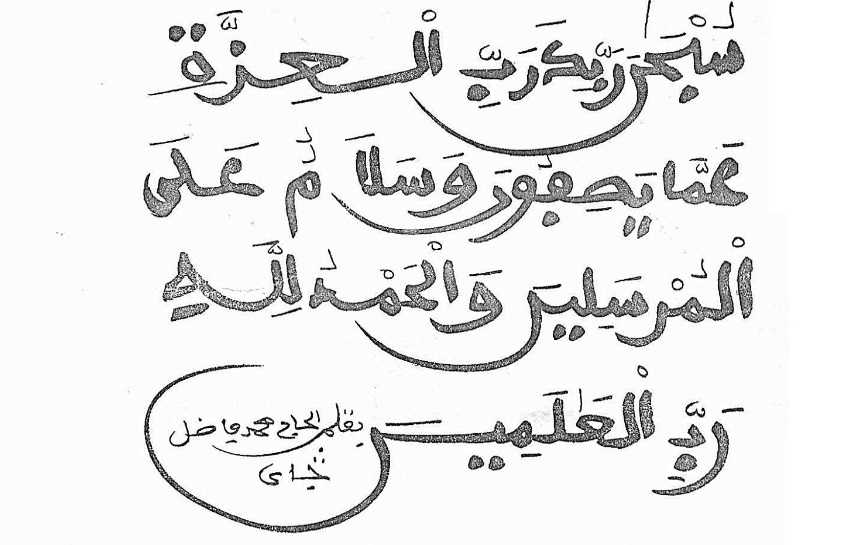 سُبْحَٰنَ رَبِّكَ رَبِّ الْعِزَّةِ
عَمَّا يَصِفُونَ وَسَلَامٌ عَلَى
الْمُرْسَلِينَ وَالْحَمْدُ لِلَّهِ
رَبِّ الْعَٰلَمِينَ
بقلم الحاج محمد فاضل